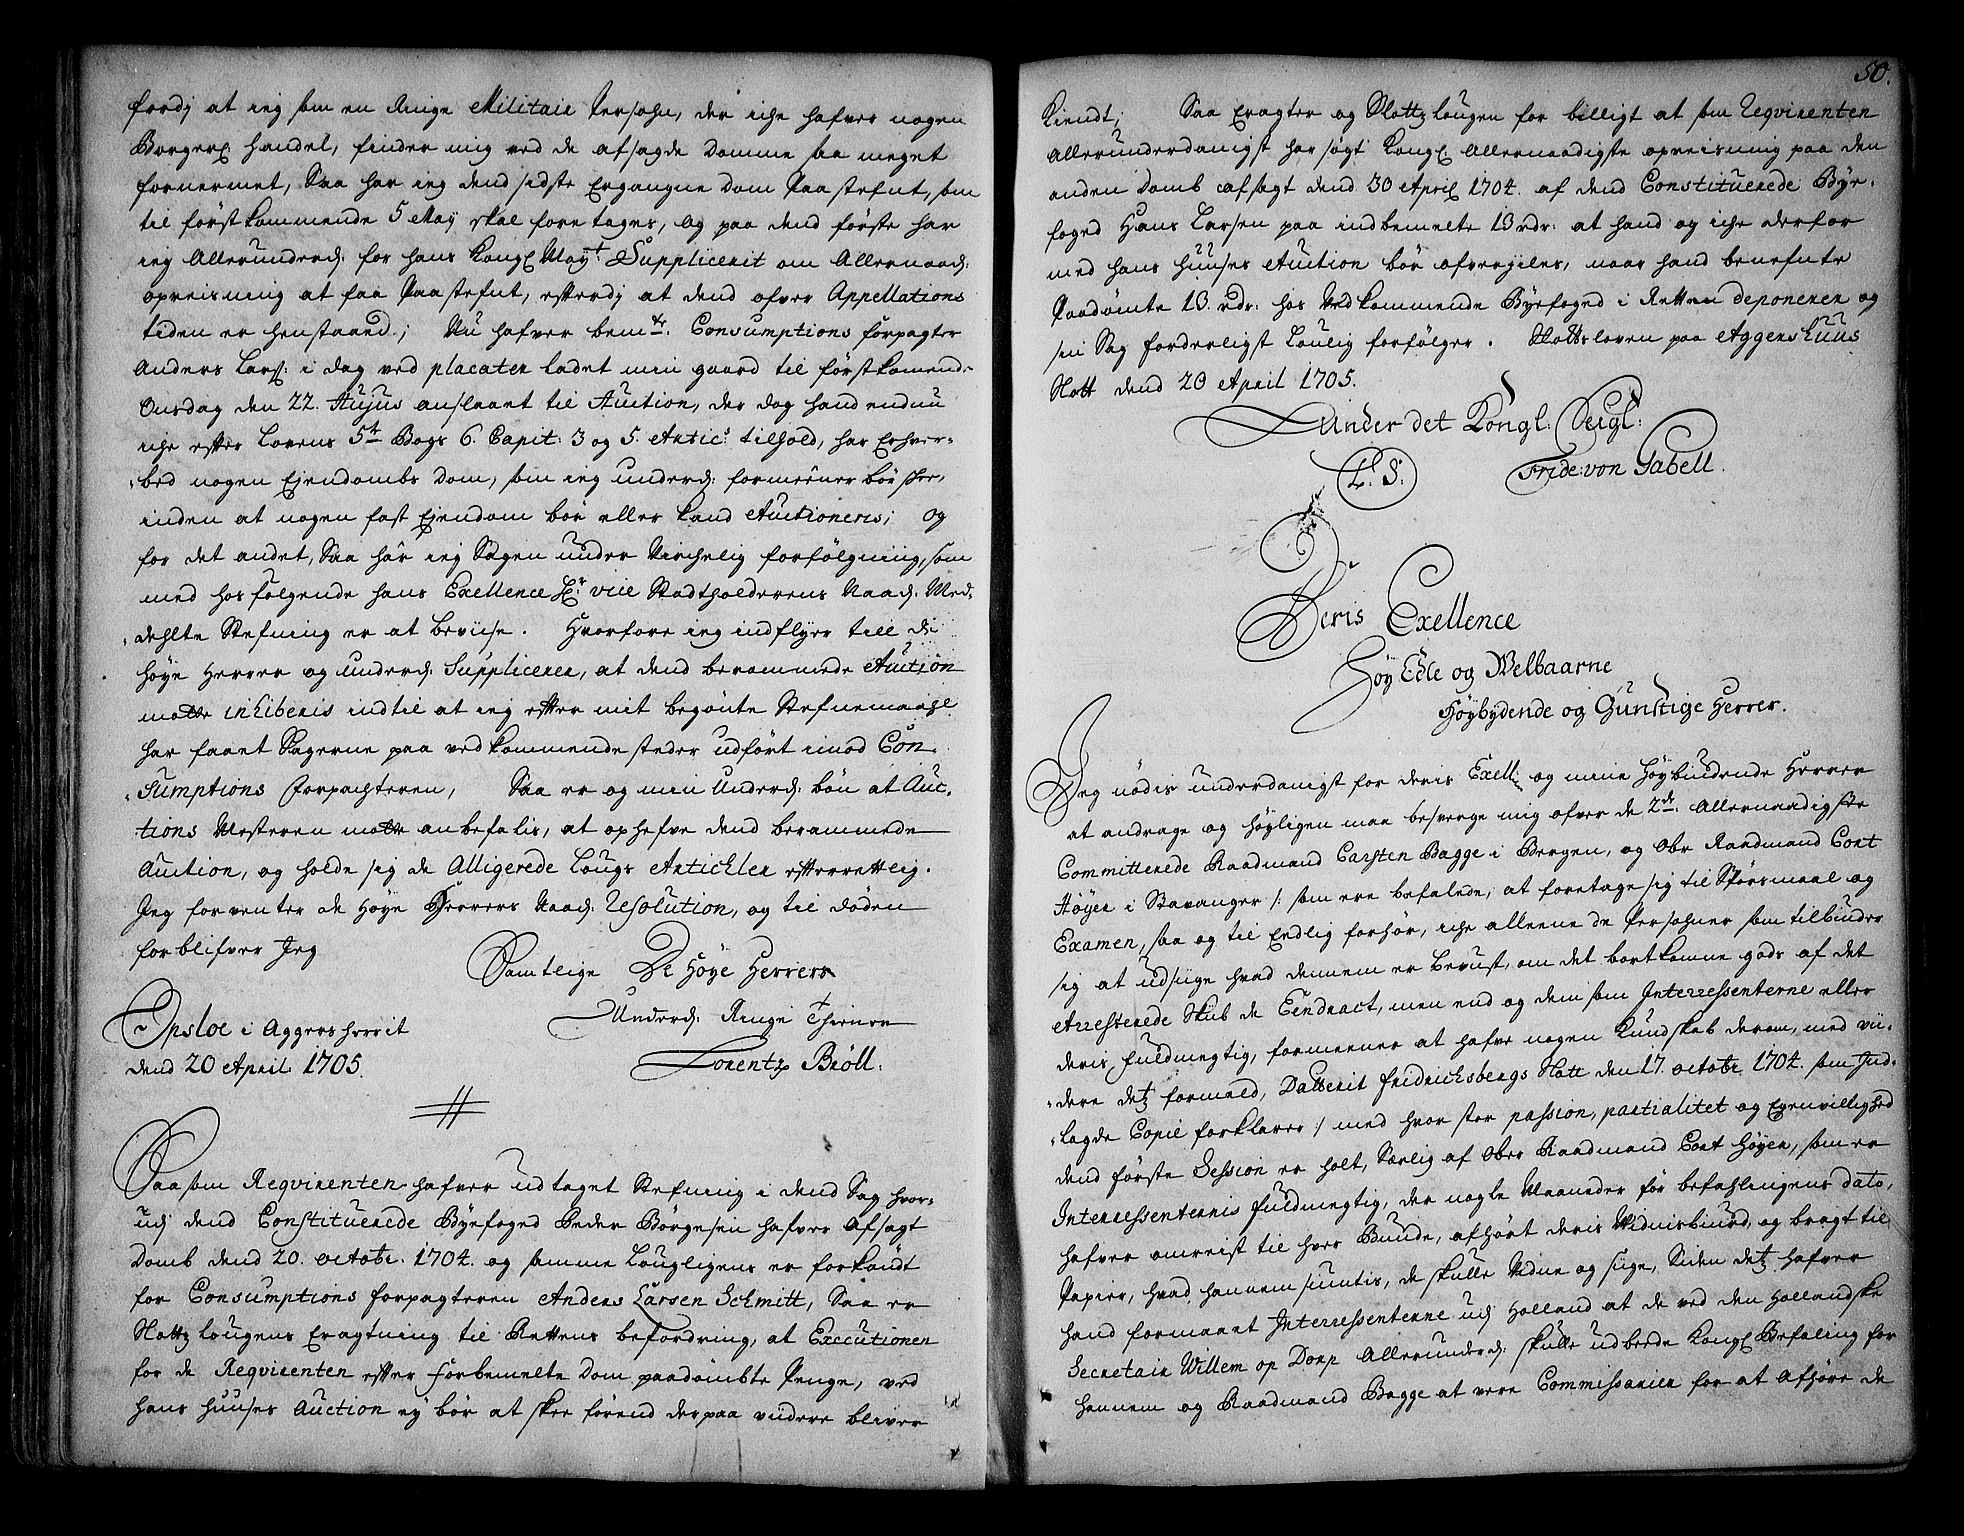 fordj at ieg som en Ringe Militair Persohn, der iche hafver nogen
Borgerl handel, finder mig ved de afsagde Domme saa meget
fornermet, Saa har ieg dend sidste Ergangne Dom Paastefnt, som
til førstkommende 5 Maij skal foretages, og paa dend første har
ieg Allerunderd: for hans Kongl Mayt Supplicerit om Allernaad:
opreisning at faa Paastefnt, efterdj at dend ofver Appellations
tiden er henstaaend; Nu hafver bemte: Consumptions forpagter
Anders Lars: i dag ved placater ladet min gaard til førstkomend-
Onsdag den 22. Hujus anslaaet til Auction, der dog hand endnu
iche efter Lovens 5te Bogs 6. Capit: 3 og 5. Artic: tilhold, har Erhver-
bed nogen Ejendombs Dom, som ieg underd: formeener bør skee,
inden at nogen fast Ejendom bør eller kand Auctioneris; og
for det andet, Saa har ieg Sagen under Virchelig forfølgning, som
med hosfølgende hans Exellence Hr vice Stadtholderens Naad: Med-
dehlte Stefning er at beviise. Hvorfore ieg indflyer till de
høye Herrer og underd: Supplicerer, at dend berammede Auction
motte inhiberis indtil at ieg efter mit begønte Stefnemaahl
har faaet Sagerne paa vedkommende steder udført imod Con-
sumptions forpachteren, Saa er og min Underd: bøn at Auc-
tions Mesteren motte anbefalis, at ophefve dend berammede
Auction, og holde sig de Alligerede Lougs Artichler efterretteig.
Jeg forventer de Høye Herrers Naad: Resolution, og til døden
forblifver Jeg
Samtleige De Høye Herrers
Underd: Ringe Thiener
Opsloe i Aggersherrit
Lorentz Brøll.
dend 20 April 1705.
Saasom Reqvirenten hafver udtaget Stefning i dend Sag hvor-
udj dend Constituerede Byefoged Peder Børgesen hafver Afsagt
Domb dend 20. octobr. 1704. og samme Lougligens er forkøndt
for Consumptions forpagteren Anders Larsen Schmitt, Saa er
Slottz Lougens Eragtning til Rettens befordring, at Executionen
for de Reqvirenten efter forbemelte Dom paadømbte Penge, ved
hans huuses Auction ej bør at skee førend derpaa videre bliver
50.
Kiendt; Saa Eragter og Slottzlougen for billigt at som Reqvirenten
Allerunderdanigst har søgt Kongl Allernaadigste opreisning paa den
anden Domb afsagt dend 30 April 1704. af dend Constituerede Bye-
foged Hans Larsen paa indbemelte 13 rdr: at hand og iche derfor
med hans huuses Auction bør ofverjiles, naar hand benefnte
Paadømte 13. rdr: hos Vedkommende Byefoged i Retten deponerer og
sin Sag forderligst Loulig forfølger. Slottsloven paa Aggershuus
Slott dend 20 April 1705.
Under det Kongl: Seigl:
L. S. Fride: von Gabell.
Deris Exellence
Høy Edle og Welbaarne
Høybydende og Gunstige Herrer.
Jeg nødis underdanigst for deris Exell: og mine Høybiudende Herrer
at andrage og høyligen maa besverge mig ofver de 2de: Allernaadigste
Committerede Raadmand Carsten Bagge i Bergen, og Obr Raadmand Cort
Høyer i Stavanger /: som ere befalede, at foretage sig til Spørsmaal og
Examen, saa og til Endlig forhør, iche alleene de Persohner som tilbiuder
sig at udsiige hvad dennem er bevust, om det bortkomne gods af det
Arresterede Skib de Eendract, men end og dem som Interressenterne eller
deris fuldmegtig, formeener at hafve nogen Kundskab derom, med vii-
dere detz formeld, Datterit Fridrichsbergs Slott den 17. octobr 1704. som Ind-
lagde Copie forklarer :/ med hvor stor passion, partialitet og Egenvillighed
dend første Session er holt, Særlig af Ober Raadmand Cort Høyer, som er
Interressenternis fuldmegtig, der nogle Maaneder før befahlingens dato,
hafver omreist til hver Bunde, afhørt deris Vidnisbiurd, og bragt til
Papier, hvad hannem siuntis, de skulle Vidne og siige, Siden detz hafver
hand formaaet Interressenterne udj Holland at de ved den Hollandske
Secretair Willem op Dorp Allerunderd: skulle udbede Kongl Befaling for
hannem og Raadmand Bagge at vere Commissarier for at Afhøre de